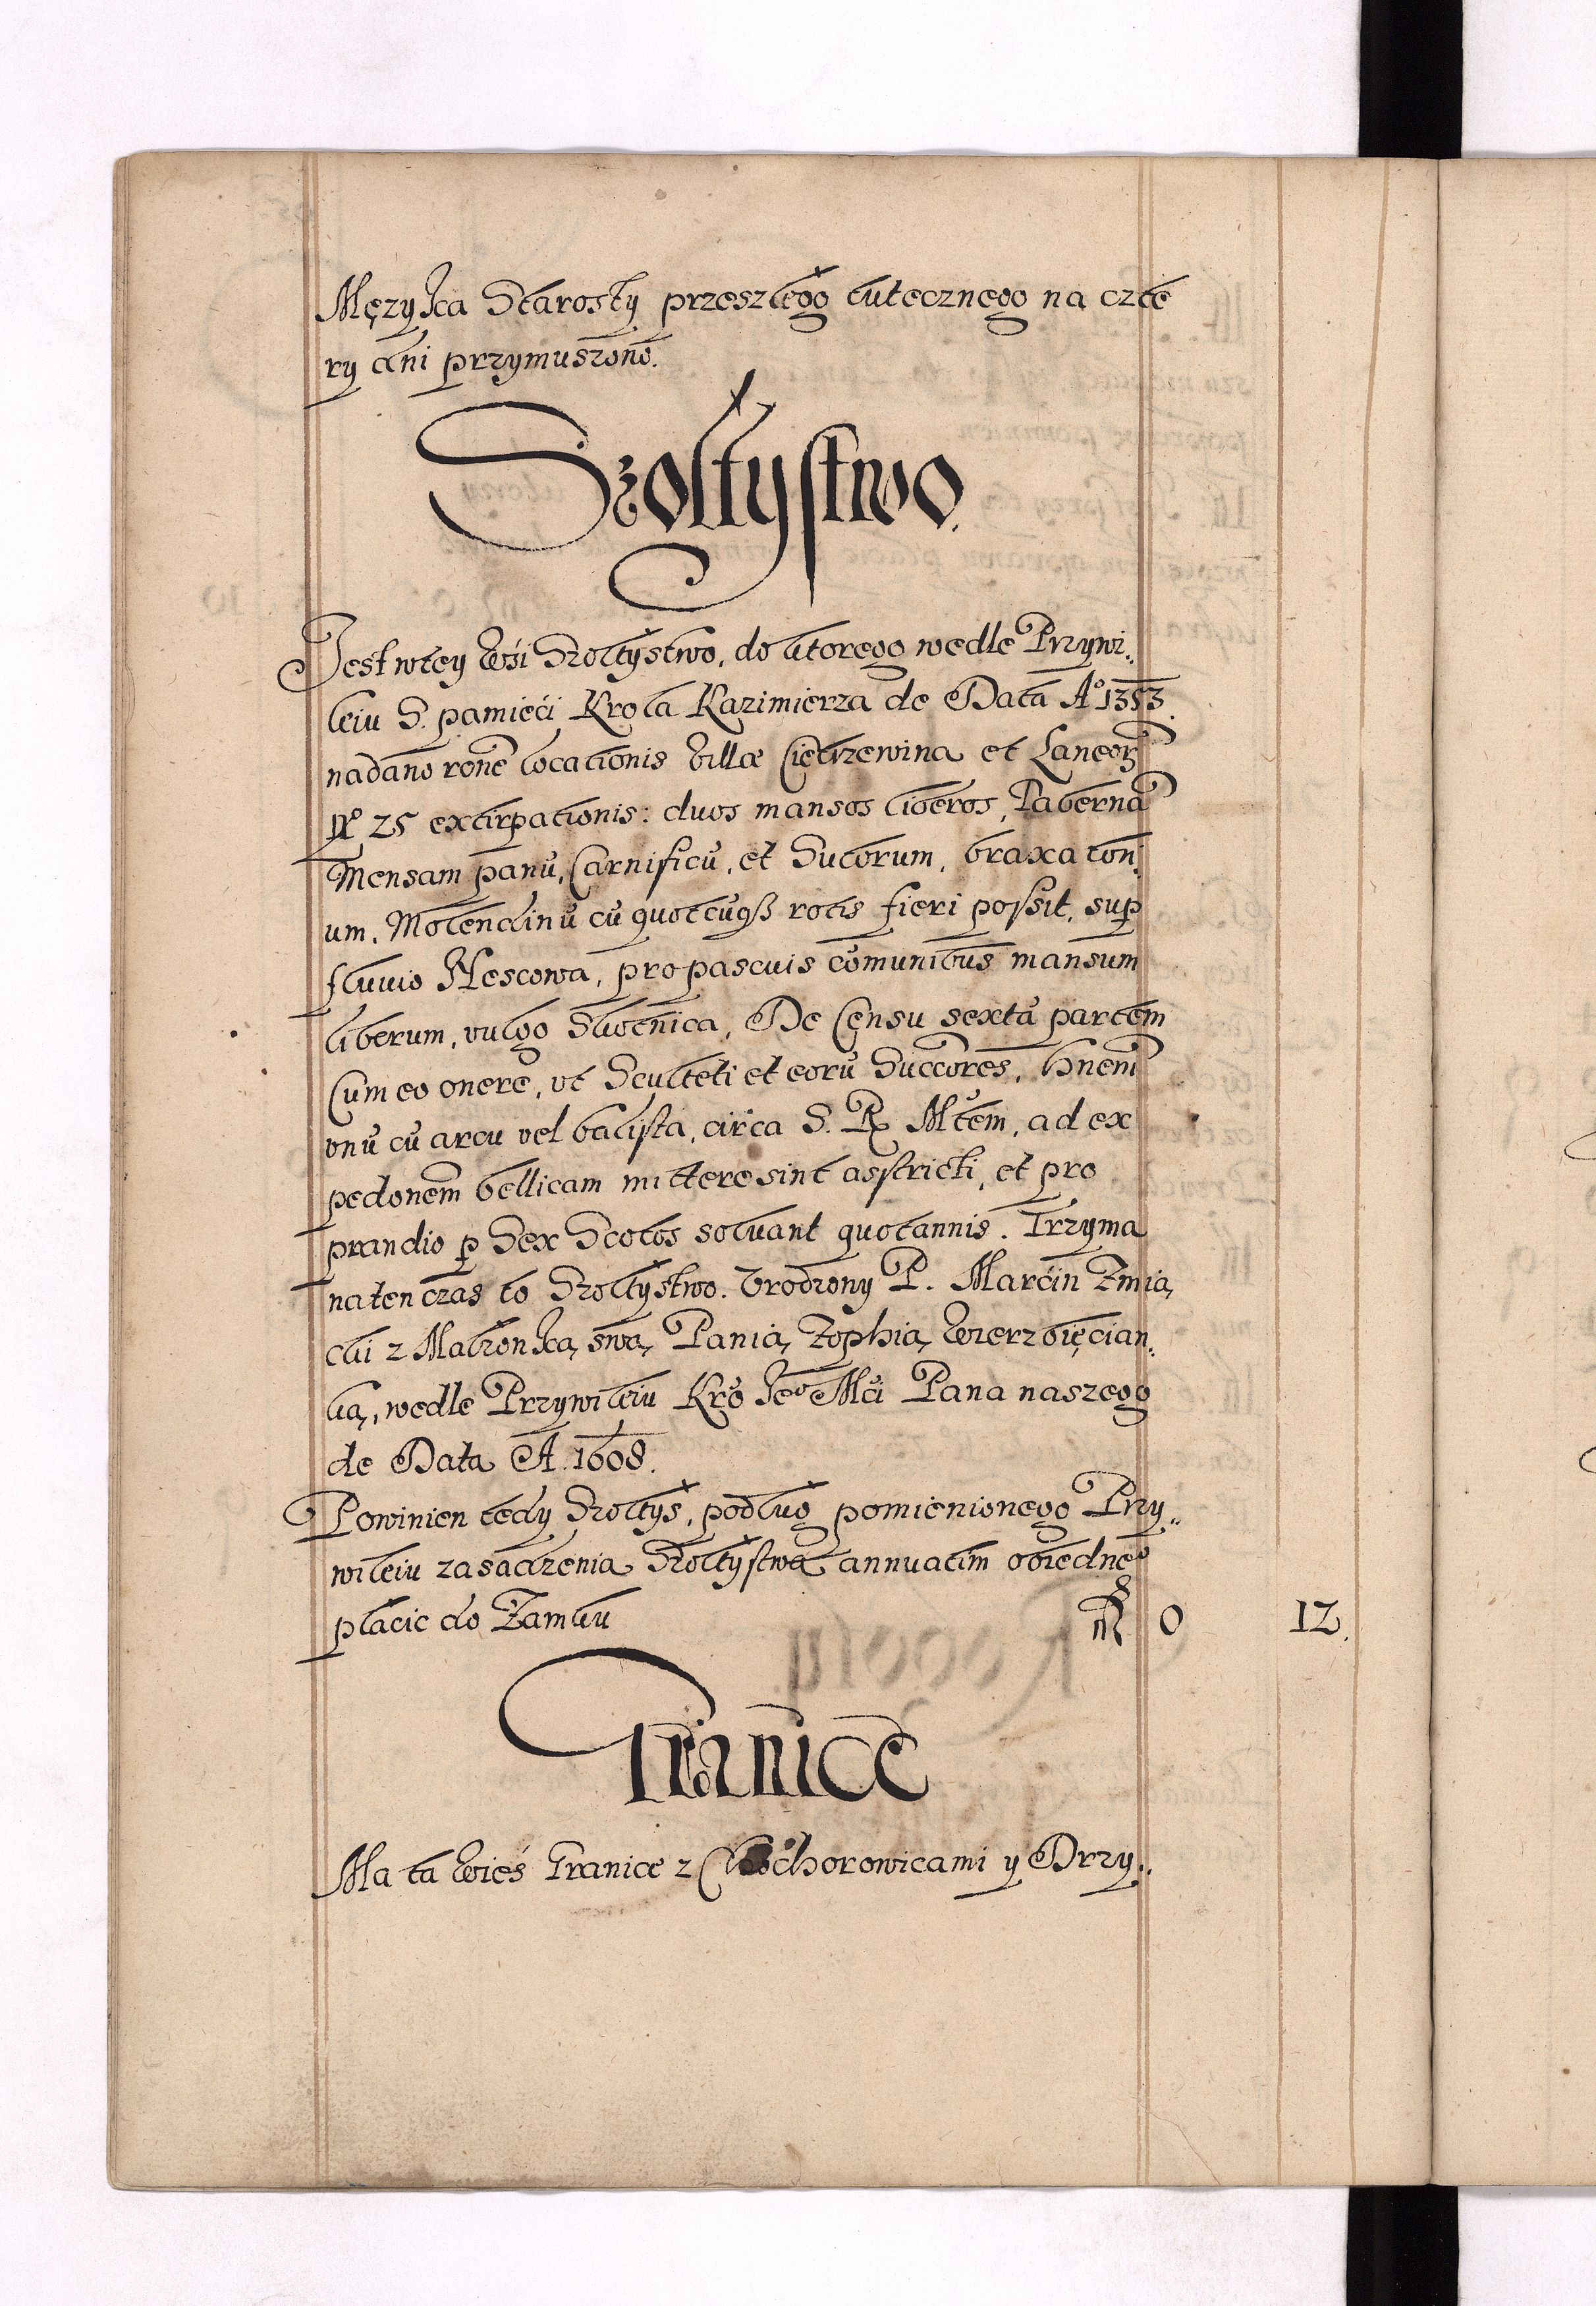 Męzyka Starosty przeszłego tutecznego na czte
ry dni przymuszono.
Szołtystwo.
Jest wtey Wśi Szołtystwo, do ktorego wedle Przywi„
leiu S. pamięći Krola Kazimierza de Data Aº 1353
nadano rone locationis Villæ Cietrzewina et Laneoꝝ
Nº 25 extirpationis: duos mansos liberos, Tabernã
Mensam panũ, Carnificũ, et Sutorum, braxaton.
um, Molendinũ cũ quotcuqꝫ rotis fieri poſsit, sup
fluvio Nescowa, pro pascuis cõmunibus mansum
liberum, vulgo Skotnica, De Censu sextã partem
Cum eo onere, ut Sculteti et eorũ Succores, hnem
unũ cũ arcu vel baliſta, circa S. R. Mtem, ad ex
pedonem bellicam mittere sint aſſtricti, et pro
prandio p Sex Scotos solvant quotannis. Trzyma
naten czas to Szołtystwo. Vrodzony P. Marćin Zmia,
cki z Małzonką swą, Panią Zophią Wierzbięcian„
ką, wedle Przywileiu Krº Jeº Mći Pana naszego
de Data A. 1608.
Powinien tedy Szołtys, podług pomienionego Przy„
wileiu zasadzenia Szołtystwa annuatim obiedneº
płacic do Zamku 0 12.
Granice
Ma ta Wieś Granice z Chochorowicami y Brzy„